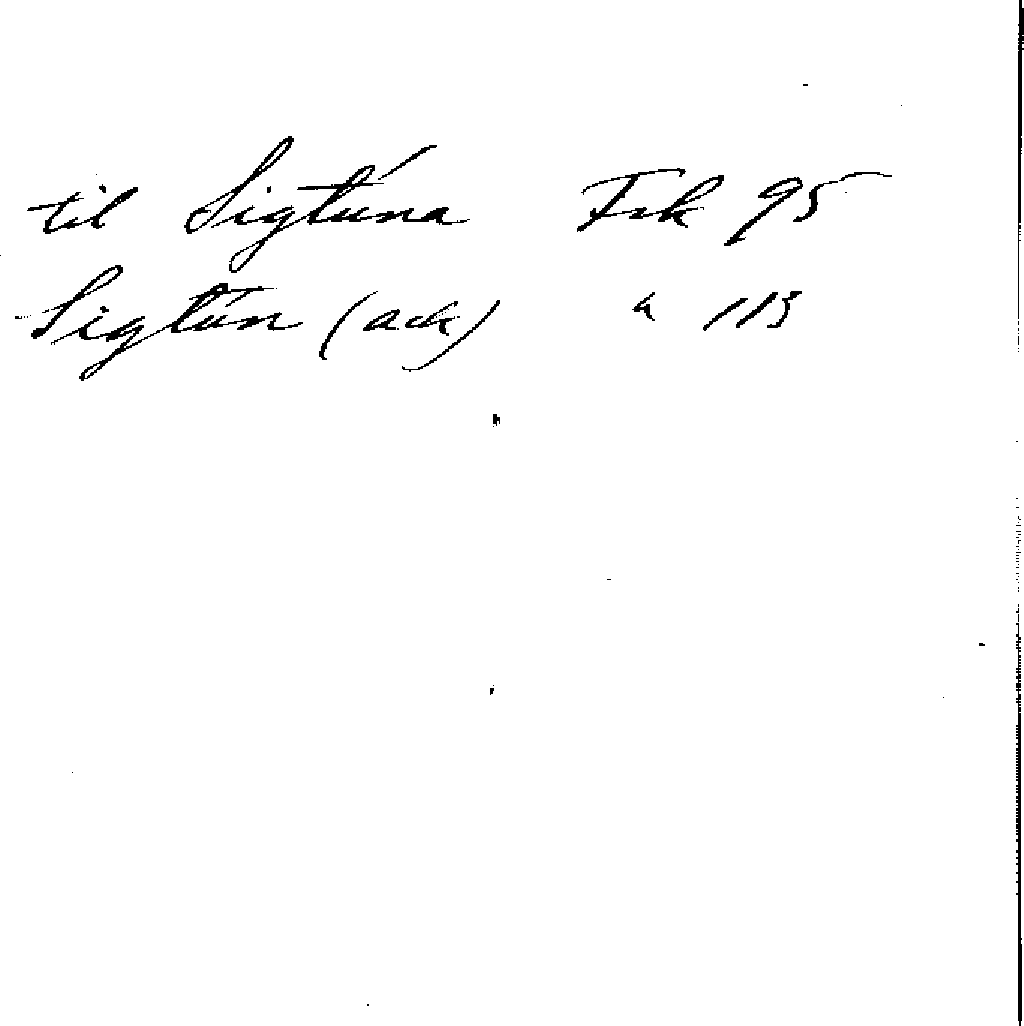 til Sigtúna Fsk 95
Sigtún (ack) " 113